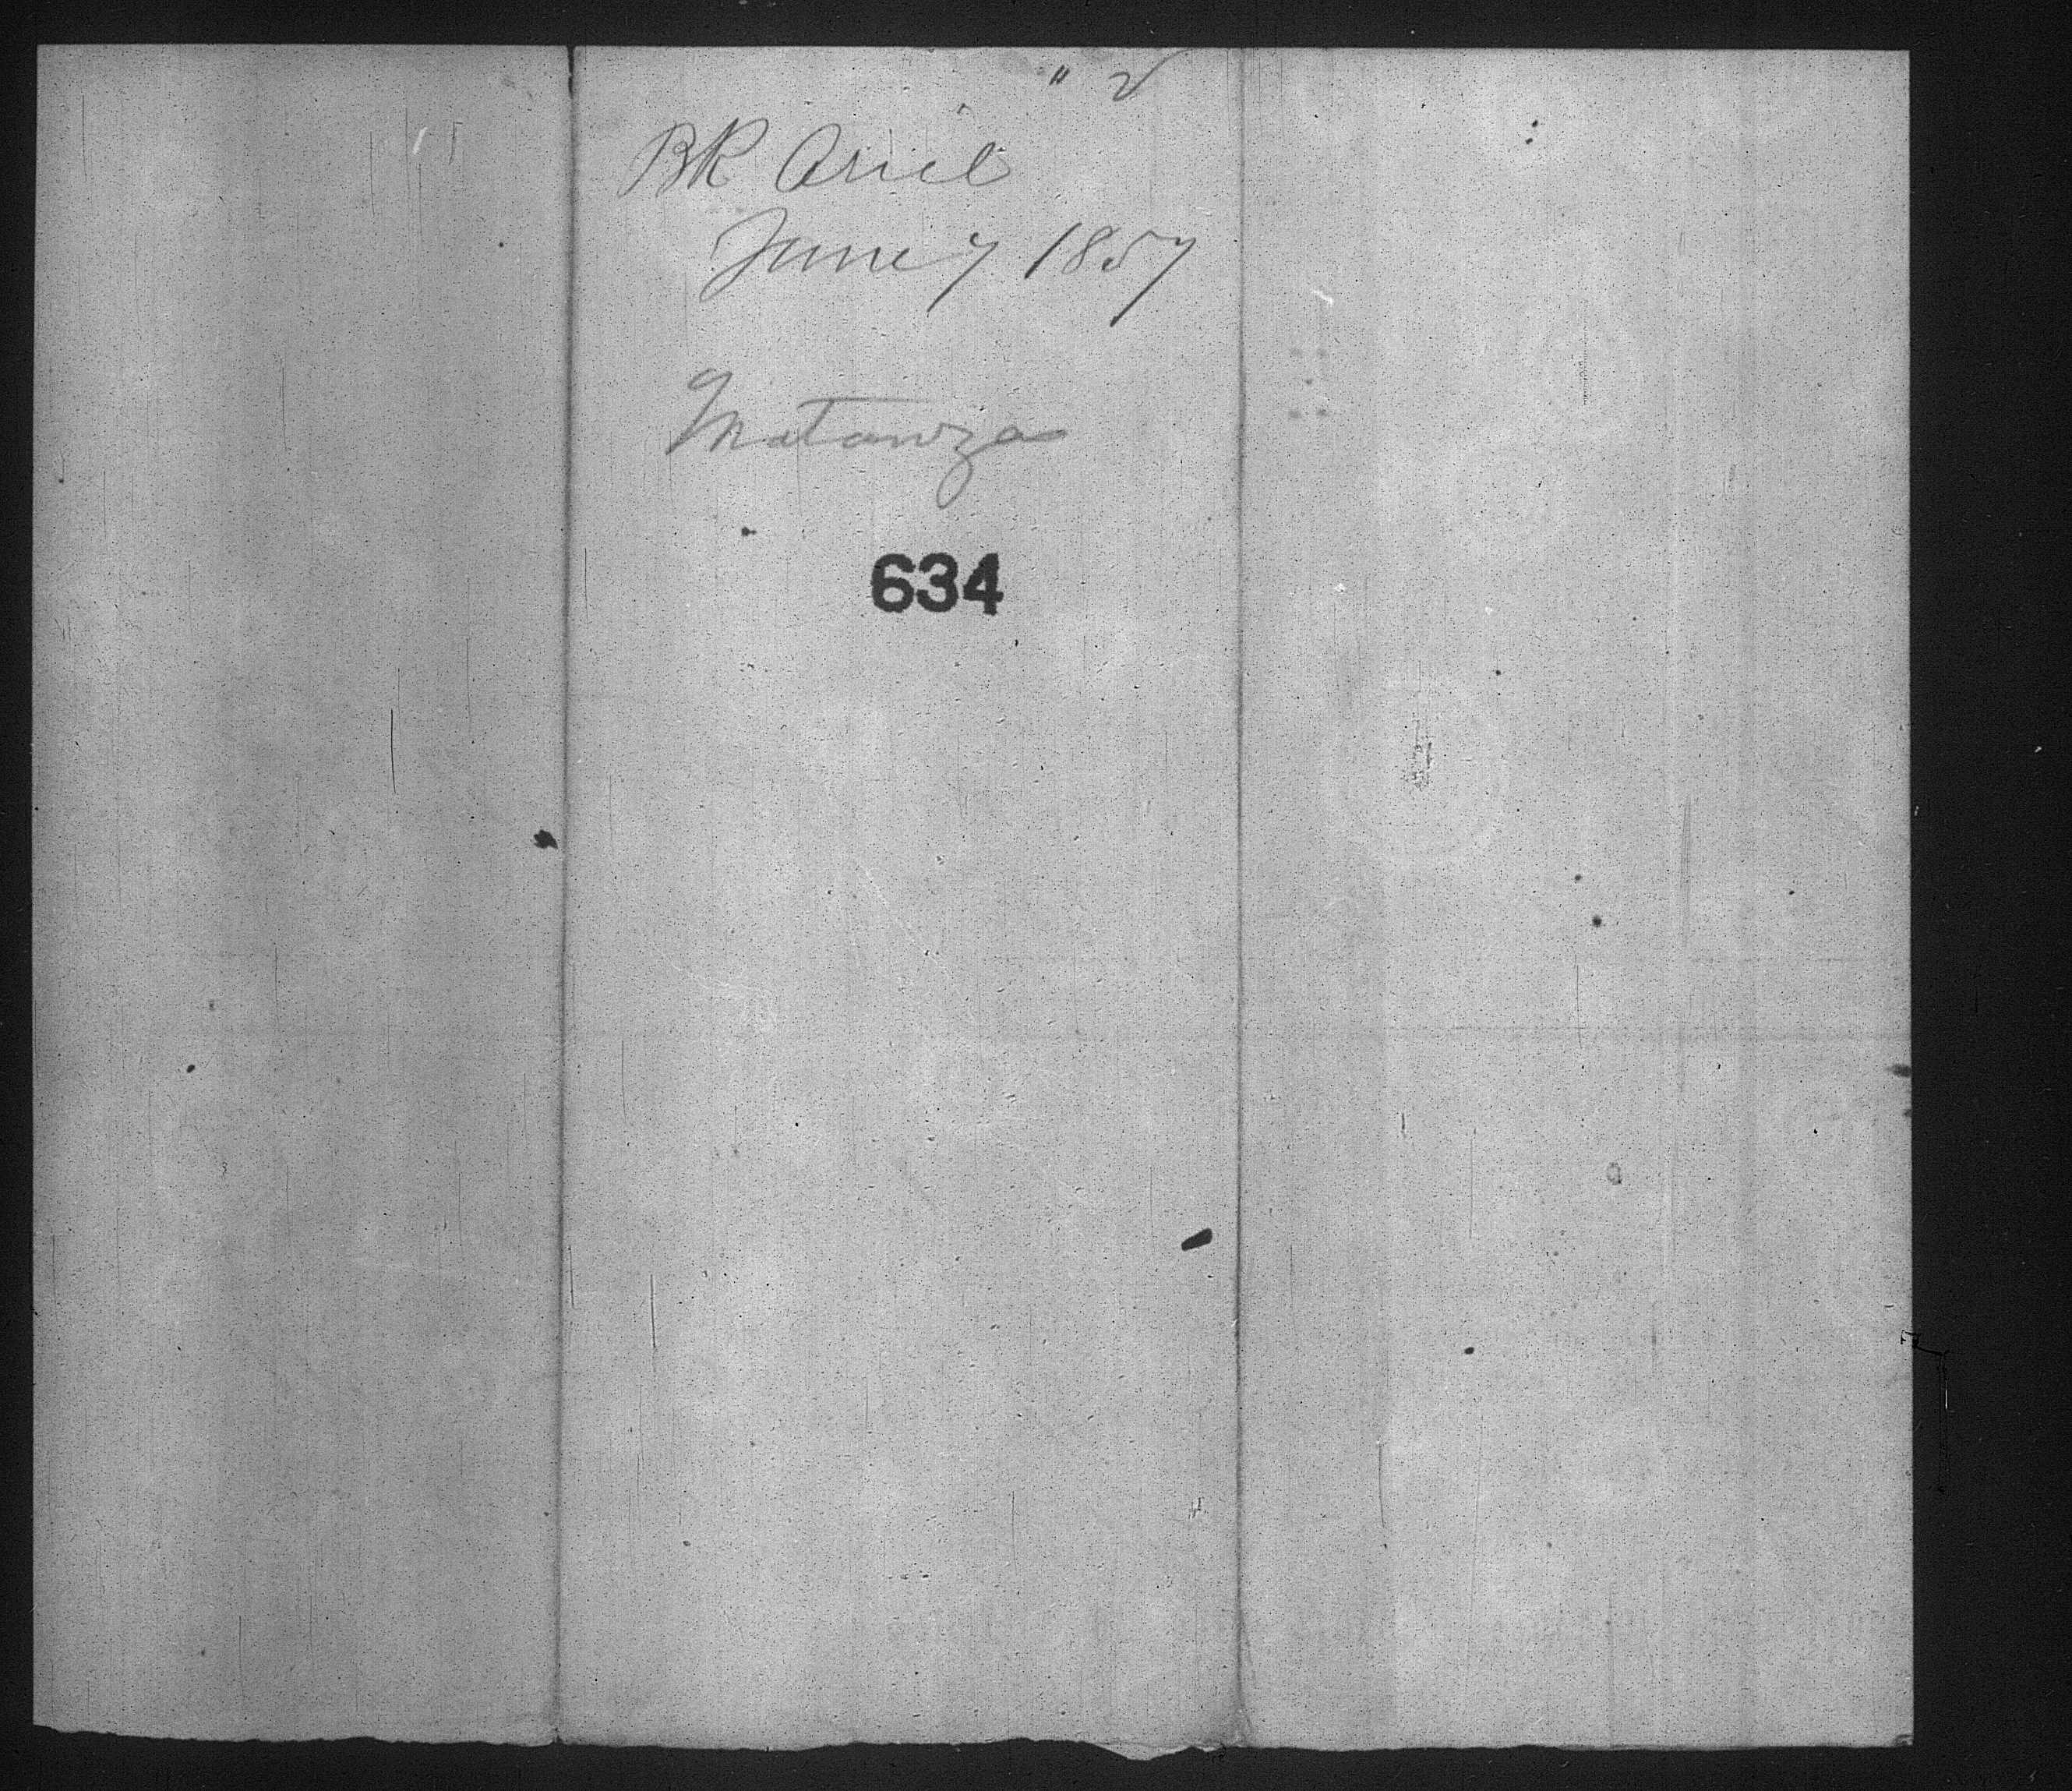 " 2
BK Ariel
June 7 1857
Matanza
634